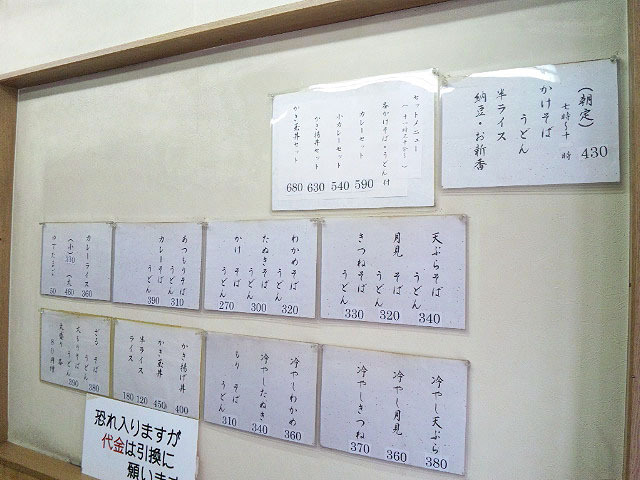 (朝定)
七時〜十時
430
かけそば
うどん
半ライス
納豆・お新香
セットメニュー
各かけそば・うどん付
カレーセット 590
小カレーセット 540
かき揚丼セット 630
かき玉丼セット 680
天ぷらそば
うどん 340
月見そば
うどん 320
きつねそば
うどん 330
わかめそば
うどん 320
たぬきそば
うどん 300
かけそば
うどん 270
あつもりそば
うどん 310
カレーそば
うどん 390
カレーライス 360
(小) 330
(大) 460
ゆでたまご 50
冷やし天ぷら 380
冷やし月見 360
冷やしきつね 370
冷やしわかめ 360
冷やしたぬき 340
もりそば
うどん 310
かき揚げ丼 400
かき玉丼 450
半ライス 120
ライス 180
ざるそば
うどん 380
大もりそば
うどん 390
恐れ入りますが
代金は引換に
願います